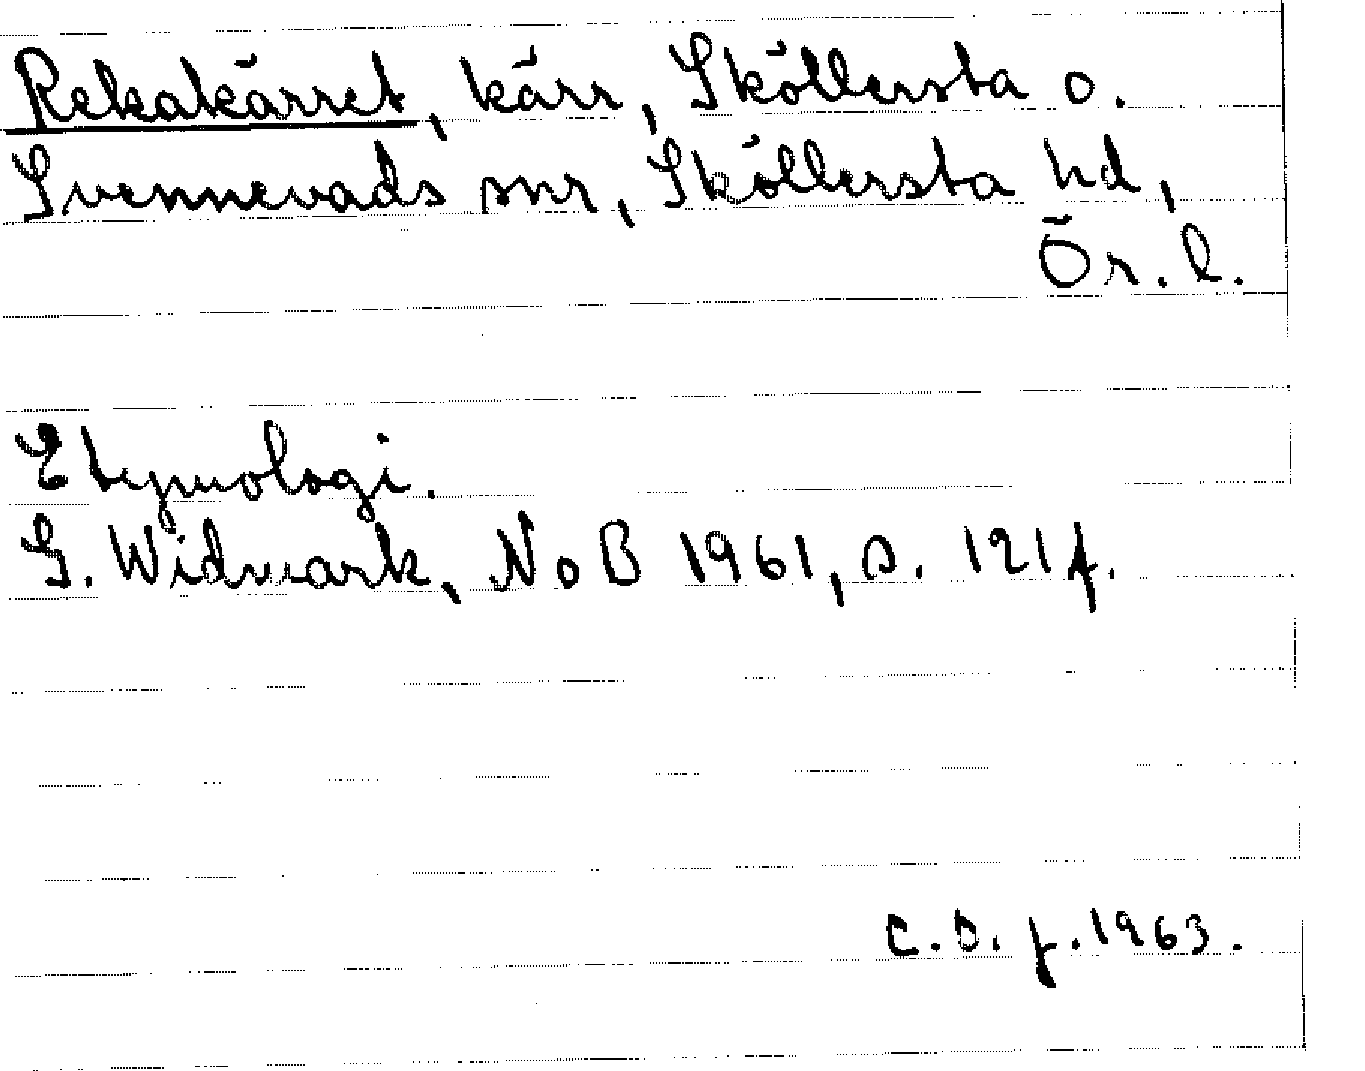 Rekakärret, kärr, Sköllersta o.
Svennevads snr, Sköllersta hd,
Ör. l.
Etymologi.
G. Widmark, NoB 1961, s. 121 f.
C.O. f. 1963.